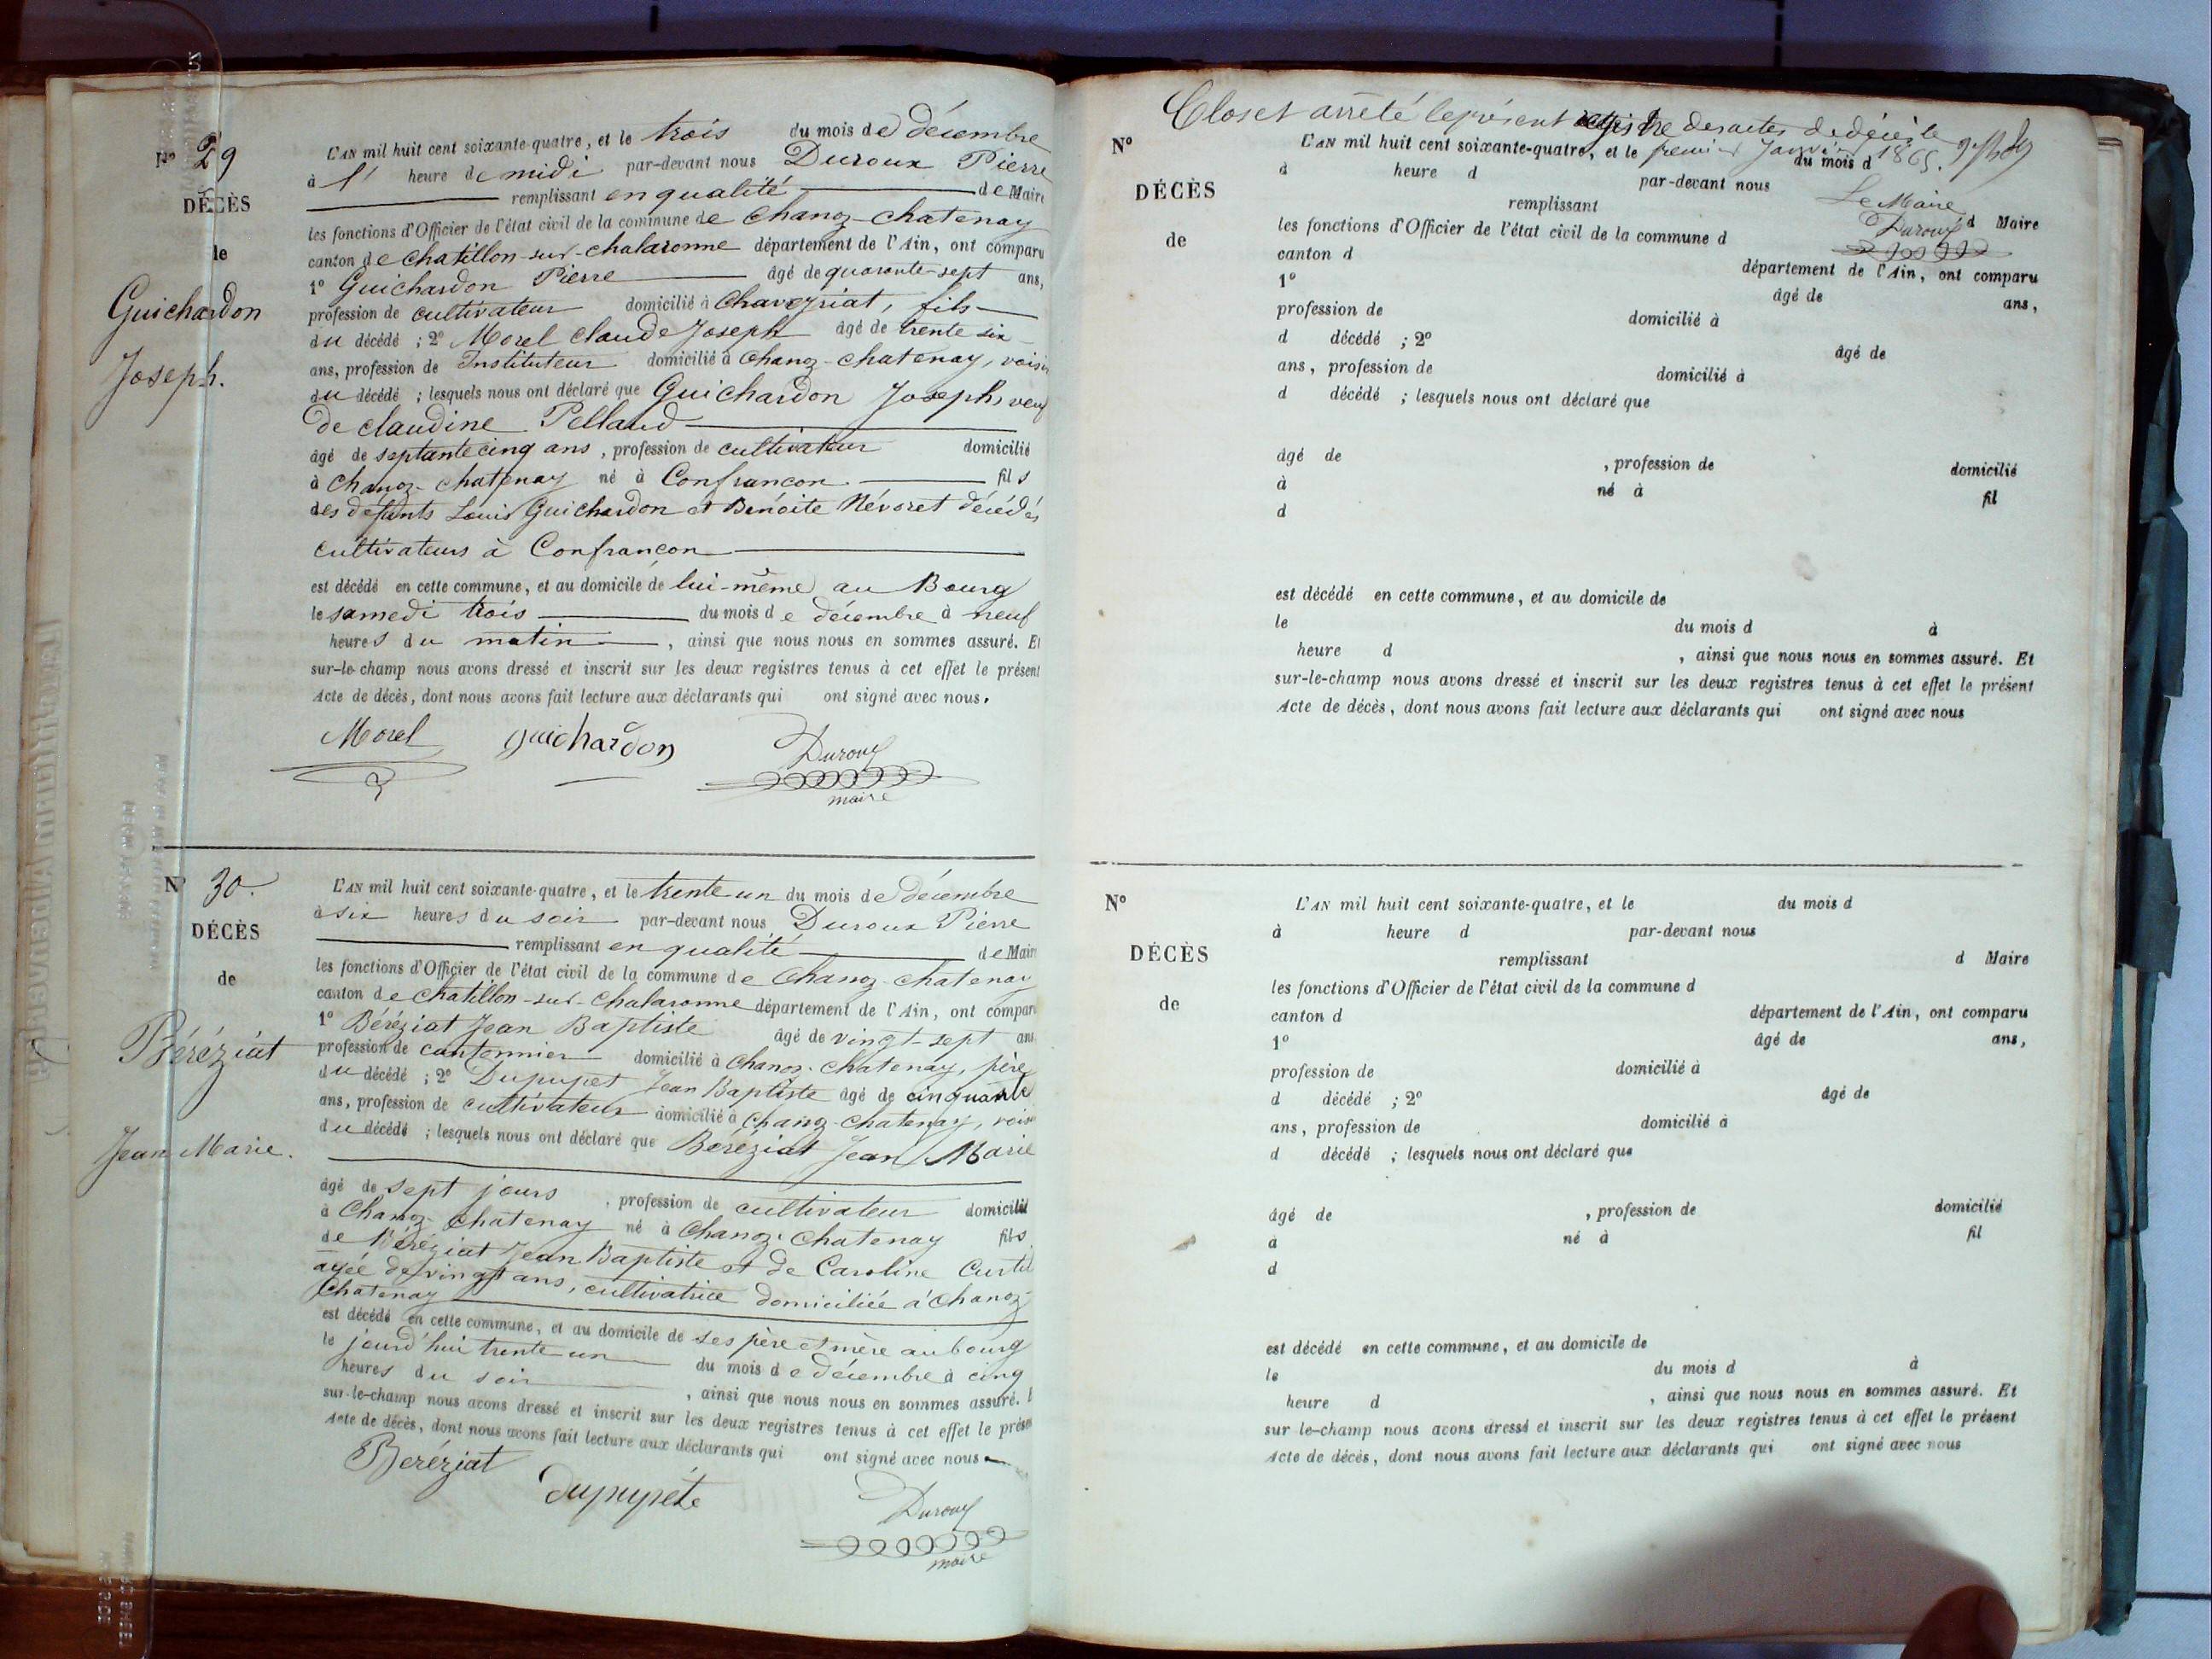 Nº 29
DÉCÈS
de
Guichardon
Joseph.
L'AN mil huit cent soixante-quatre, et le trois du mois de décembre
à l' heure de midi par-devant nous Duroux Pierre
remplissant en qualité de Maire
les fonctions d'Officier de l'état civil de la commune de Chanoz-Chatenay
canton de Chatillon-sur-Chalaronne département de l'Ain, ont comparu
1º Guichardon Pierre âgé de quarante-sept ans,
profession de cultivateur domicilié à Chaveyriat, fils
du décédé ; 2º Morel Claude Joseph âgé de trente six
ans, profession de Instituteur domicilié à Chanoz-Chatenay, voisin
du décédé ; lesquels nous ont déclaré que Guichardon Joseph, veuf
de claudine Pelland
âgé de septante cinq ans, profession de cultivateur domicilié
à Chanoz-Chatenay né à Confrançon fils
des défunts Louis Guichardon et Benoite Névoret décédés
cultivateurs à Confrançon
est décédé en cette commune, et au domicile de lui-même au Bourg
le samedi trois du mois de décembre à neuf
heures du matin, ainsi que nous nous en sommes assuré. Et
sur-le-champ nous avons dressé et inscrit sur les deux registres tenus à cet effet le présent
Acte de décès, dont nous avons fait lecture aux déclarants qui ont signé avec nous.
Morel Guichardon Duroux
maire
Nº 30.
DÉCÈS
de
Béréziat
Jean Marie.
L'AN mil huit cent soixante-quatre, et le trente un du mois de décembre
à six heures du soir par-devant nous Duroux Pierre
remplissant en qualité de Maire
les fonctions d'Officier de l'état civil de la commune de Chanoz-Chatenay
canton de Chatillon-sur-Chalaronne département de l'Ain, ont comparu
1º Béréziat Jean Baptiste âgé de vingt-sept ans
profession de cantonnier domicilié à Chanoz-Chatenay, père
du décédé ; 2º Dupupet Jean Baptiste âgé de cinquante
ans, profession de cultivateur domicilié à Chanoz-Chatenay, voisin
du décédé ; lesquels nous ont déclaré que Beréziat Jean Marie
âgé de sept jours, profession de cultivateur domicilié
à Chanoz-Chatenay né à Chanoz-Chatenay fils
de Béréziat Jean Baptiste et de Caroline Curtil
agée de vingt ans, cultivatrice domiciliée à Chanoz-
Chatenay
est décédé en cette commune, et au domicile de ses père et mère au bourg
le jourd'hui trente un du mois de décembre à cinq
heures du soir, ainsi que nous nous en sommes assuré.
sur-le-champ nous avons dressé et inscrit sur les deux registres tenus à cet effet le présent
Acte de décès, dont nous avons fait lecture aux déclarants qui ont signé avec nous
Beréziat
dupupéte
Duroux
maire
Clos et arrêté le présent registre des actes de décès le
premier Janvier 1865.
Le Maire
Duroux
Nº
DÉCÈS
de
L'AN mil huit cent soixante-quatre, et le du mois d
à heure d par-devant nous
remplissant d Maire
les fonctions d'Officier de l'état civil de la commune d
canton d département de l'Ain, ont comparu
1º âgé de ans,
profession de domicilié à
d décédé ; 2º âgé de
ans, profession de domicilié à
d décédé ; lesquels nous ont déclaré que
âgé de , profession de domicilié
à né à fil
d
est décédé en cette commune, et au domicile de
le du mois d à
heure d , ainsi que nous nous en sommes assuré. Et
sur-le-champ nous avons dressé et inscrit sur les deux registres tenus à cet effet le présent
Acte de décès, dont nous avons fait lecture aux déclarants qui ont signé avec nous
Nº
DÉCÈS
de
L'AN mil huit cent soixante-quatre, et le du mois d
à heure d par-devant nous
remplissant d Maire
les fonctions d'Officier de l'état civil de la commune d
canton d département de l'Ain, ont comparu
1º âgé de ans,
profession de domicilié à
d décédé ; 2º âgé de
ans, profession de domicilié à
d décédé ; lesquels nous ont déclaré que
âgé de , profession de domicilié
à né à fil
d
est décédé en cette commune, et au domicile de
le du mois d à
heure d , ainsi que nous nous en sommes assuré. Et
sur-le-champ nous avons dressé et inscrit sur les deux registres tenus à cet effet le présent
Acte de décès, dont nous avons fait lecture aux déclarants qui ont signé avec nous